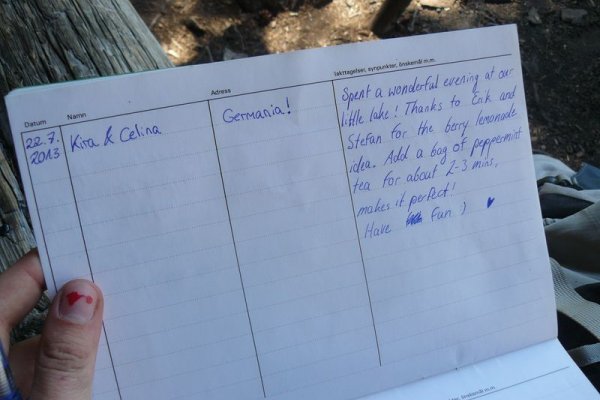 Datum
Namn
Adress
Iakttagelser, synpunkter, önskemål m.m.
22.7.
2013
Kira & Celina
Germania!
Spent a wonderful evening at our
little lake! Thanks to Erik and
Stefan for the berry lemonade
idea. Add a bag of peppermint
tea for about 2-3 mins,
makes it perfect!
Have fun :) ♥
önskemål m.m.